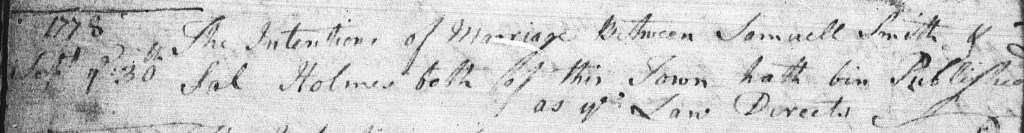 1778 The Intentions of Marriage Between Samuell Smith &
Sept ye 30th Sal Holmes both of this Town hath bin Published
as ye Law Directs